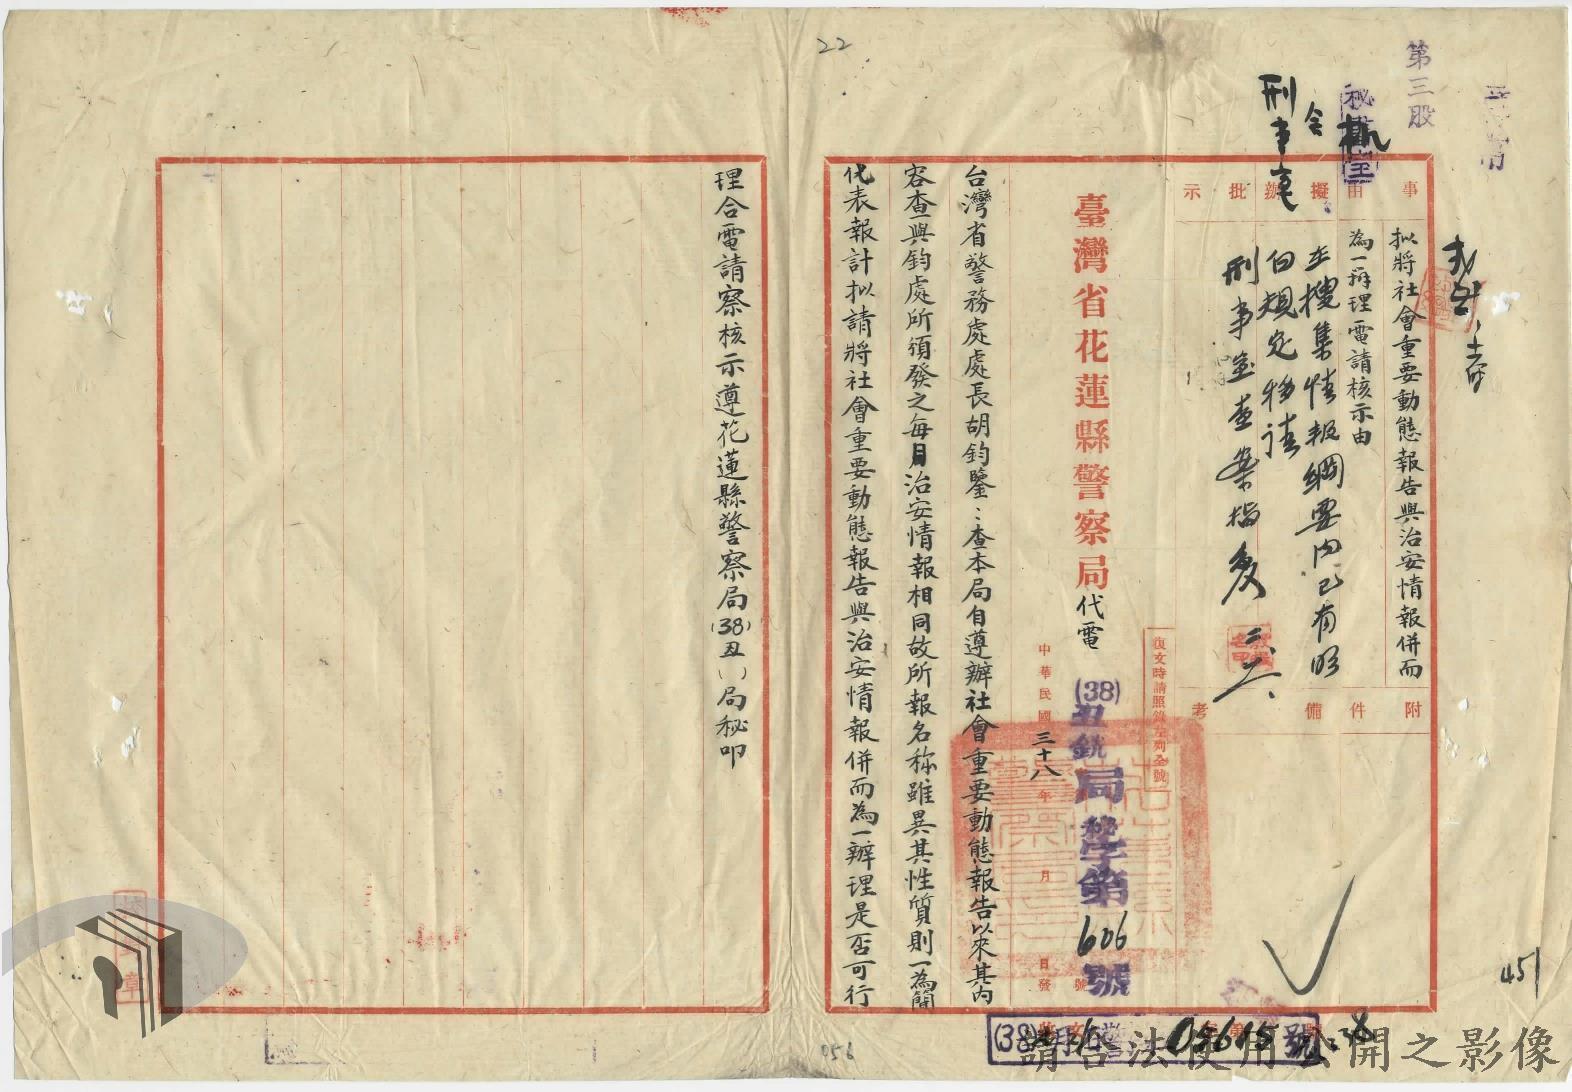 22
第三股
秘書室
刑事室
會
事由
擬辦
批示
拟將社會重要動態報告與治安情報併而
為一辦理電請核示由
搜集情報綱要內已有
規定
刑事室查案
附件
備考
復文時請照錄左列全號
臺灣省花蓮縣警察局代電
(38)丑銑局警第606號
中華民國三十八年 月 日發
台灣省警務處處長胡鈞鑒：查本局自遵辦社會重要動態報告以來其內
容查與鈞處所須發之每月治安情報相同故所報名称雖異其性質則一為簡
代表報計拟請將社會重要動態報告與治安情報併而為一辦理是否可行
理合電請察核示遵花蓮縣警察局(38)丑()局秘叩
451
056
05615號
請合法使用公開之影像